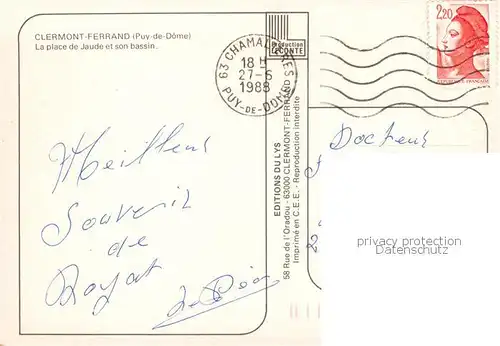 CLERMONT-FERRAND (Puy-de-Dôme)
La place de Jaude et son bassin.
Production
LECONTE
63 CHAMALIERES
18 H
27-6
1988
PUY-DE-DOME
2,20
REPUBLIQUE FRANÇAISE
EDITIONS DU LYS
58 Rue de l'Oradou - 63000 CLERMONT-FERRAND
Imprimé en C.E.E. - Reproduction interdite
Meilleur
Souvenir
de
Royat
Docteur
privacy protection
Datenschutz